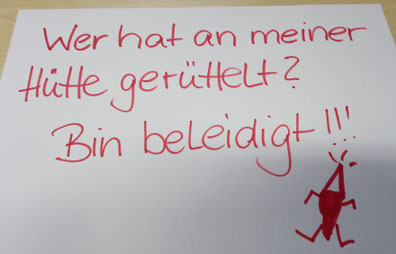 Wer hat an meiner
Hütte gerüttelt?
Bin beleidigt!!!